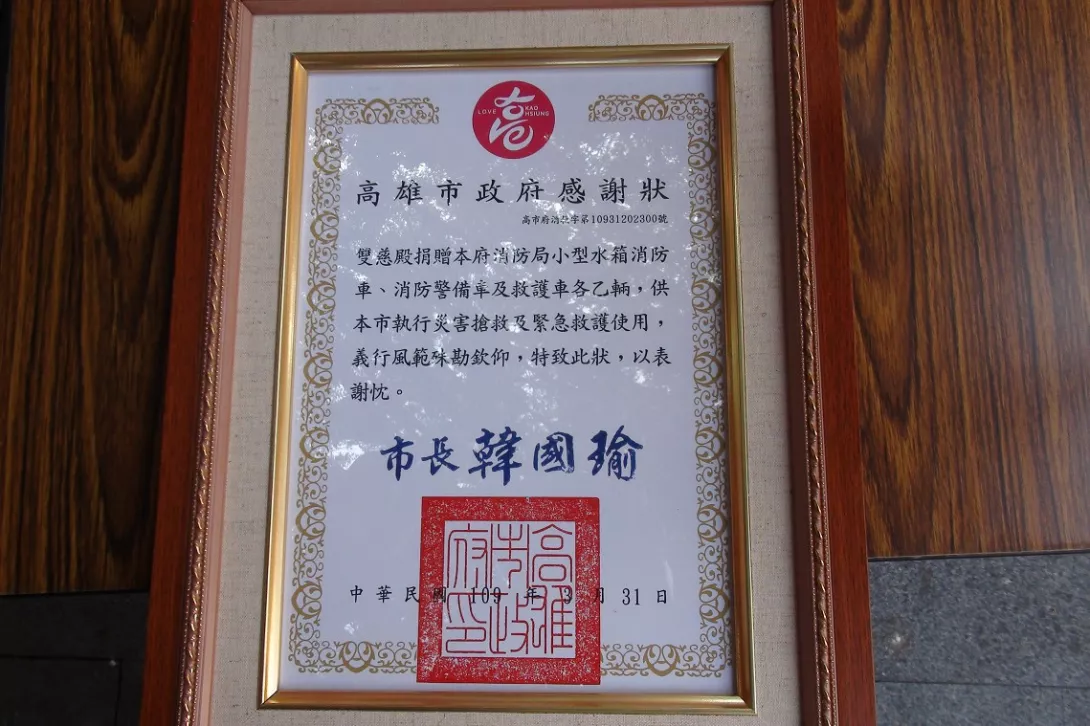 高
LOVE KAO HSIUNG
高雄市政府感謝狀
高市府消救字第10931202300號
雙慈殿捐贈本府消防局小型水箱消防
車、消防警備車及救護車各乙輛，供
本市執行災害搶救及緊急救護使用，
義行風範殊勘欽仰，特致此狀，以表
謝忱。
市長韓國瑜
高雄市政府印
中華民國109年3月31日